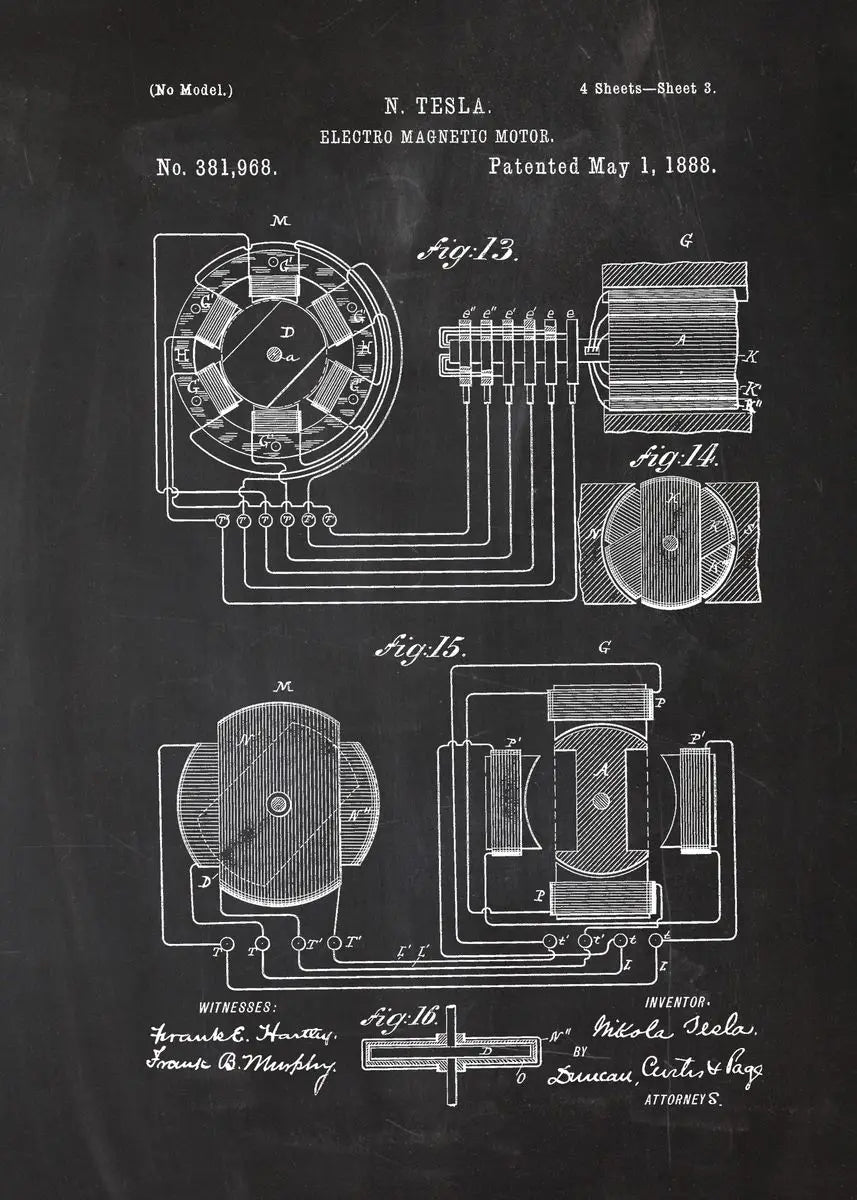 (No Model.)
4 Sheets—Sheet 3.
N. TESLA.
ELECTRO MAGNETIC MOTOR.
No. 381,968.
Patented May 1, 1888.
M
Fig:13.
G
G'
G'
G'
D
a
H
H
G'
G'
G'
e" e" e' e' e e
A
K
K'
K"
T T T T T T
Fig:14.
N
K
K'
K"
S
Fig:15.
M
G
N'
N"
D
P
P'
P'
A
P
T T T' T'
t' t' t t
L' L' L L
Fig:16.
N"
D
O
WITNESSES:
Frank E. Hartley.
Frank B. Murphy.
INVENTOR.
Nikola Tesla.
BY
Duncan, Curtis & Page
ATTORNEYS.